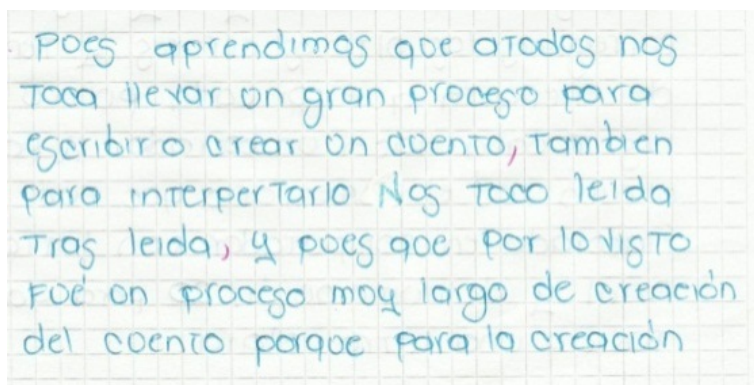 Pues aprendimos que atodos nos
Toca llevar un gran proceso para
escribir o crear un cuento, Tambien
para interpertarlo Nos Toco leida
Tras leida, y pues que por lo visto
Fué un proceso muy largo de creación
del cuento porque para la creación